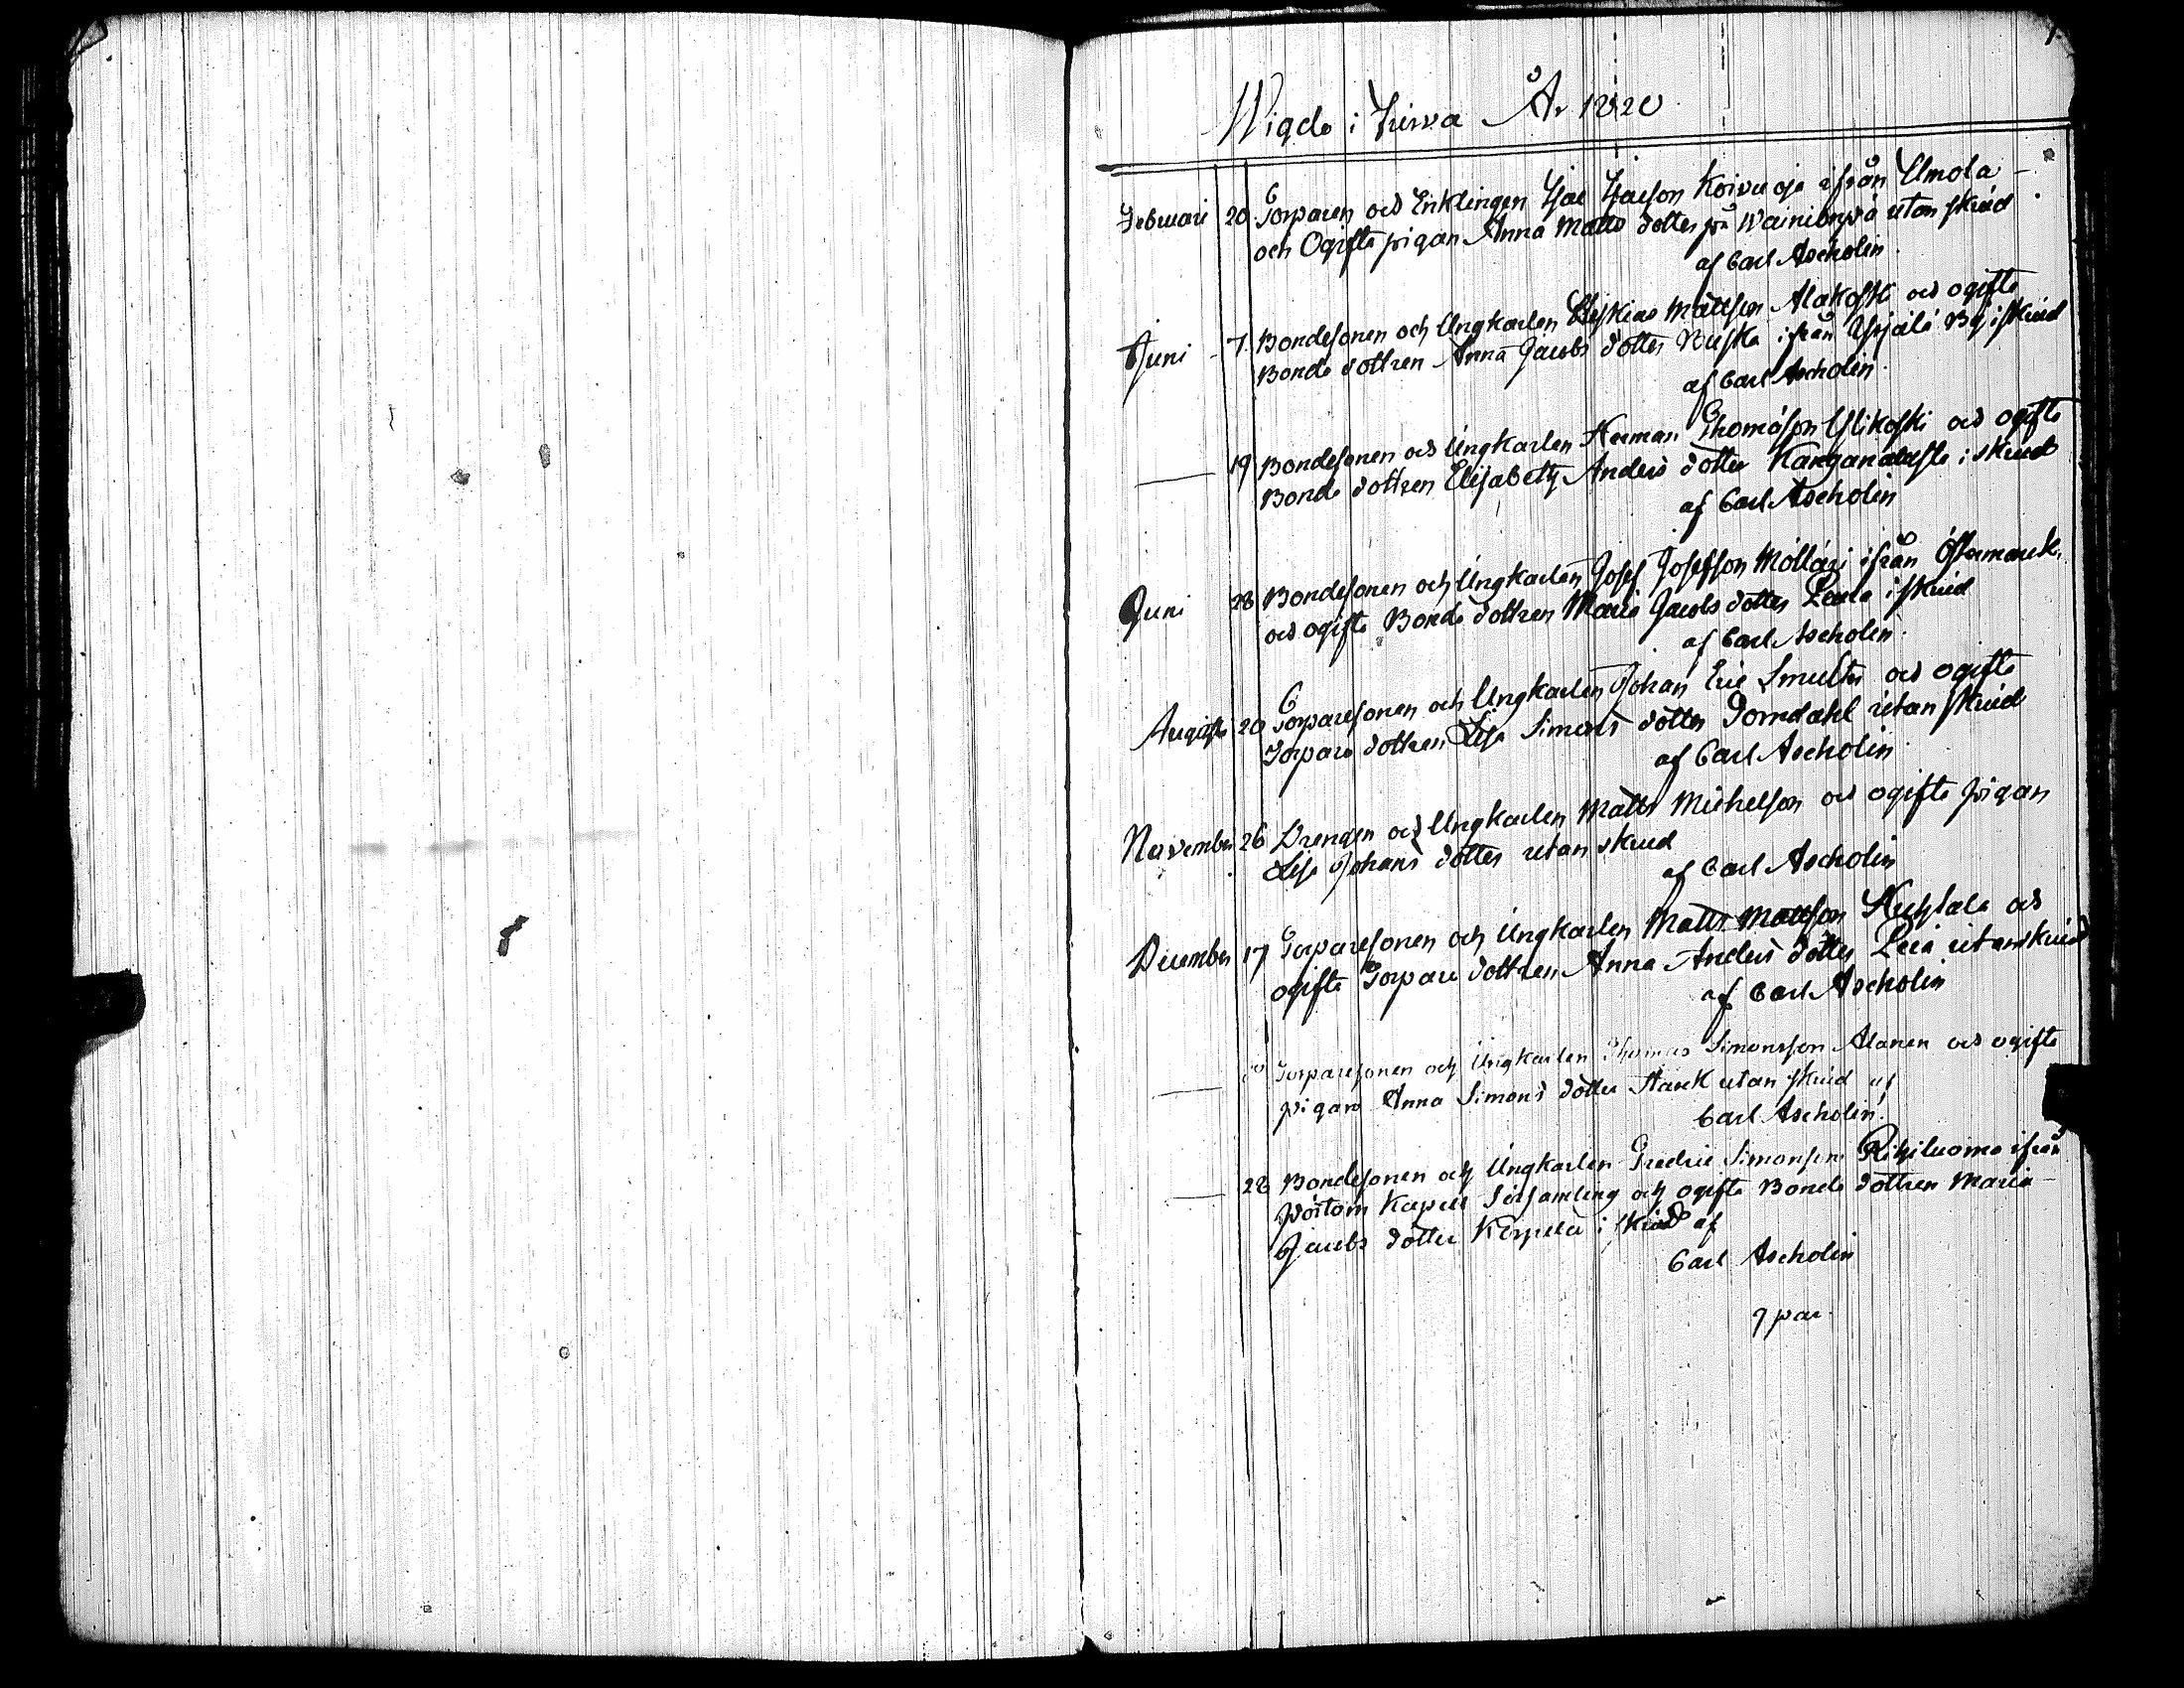 Wigde i Jurva År 1820
Februari 20 Torparen och Enklingen Isac Isacson Koivuoja ifrån Ilmola
och Ogifte pigan Anna Matts dotter på Wainionpä utan skrud
af Carl Ascholin
Juni 7. Bondesonen och Ungkarlen Mattsson Alakoski och ogifte
Bonde dottren Anna Jacobs dotter ifrån By i skrud
af Carl Ascholin
19 Bondesonen och Ungkarlen Herman Thomasson Ylikoski och ogifte
Bonde dottren Elisabeth Anders dotter i skrud
af Carl Ascholin
Juni 28 Bondesonen och Ungkarlen Josef Josefsson Möllari ifrån Östermark
och ogifte Bonde dottren Maria Jacobs dotter i skrud
af Carl Ascholin
Augusti 20 Torparesonen och Ungkarlen Johan Eric Smults och ogifte
Torpare dottren Lisa Simons dotter Dorndahl utan skrud
af Carl Ascholin
November 26 Drengen och Ungkarlen Matts Michelson och ogifte pigan
Lisa Johans dotter utan skrud
af Carl Ascholin
December 17 Torparesonen och Ungkarlen Matts Mattson Huhtala och
ogifte Torpare dottren Anna Anders dotter utan skrud
af Carl Ascholin
Torparesonen och Ungkarlen Thomas Simonsson Alanen och ogifte
pigan Anna Simons dotter Stark utan skrud af
Carl Ascholin
28 Bondesonen och Ungkarlen Fredric Simonson Rihiluoma ifrån
Pörtom Kapell Församling och ogifte Bonde dottren Maria
Jacobs dotter Korpela i skrud af
Carl Ascholin
9 par